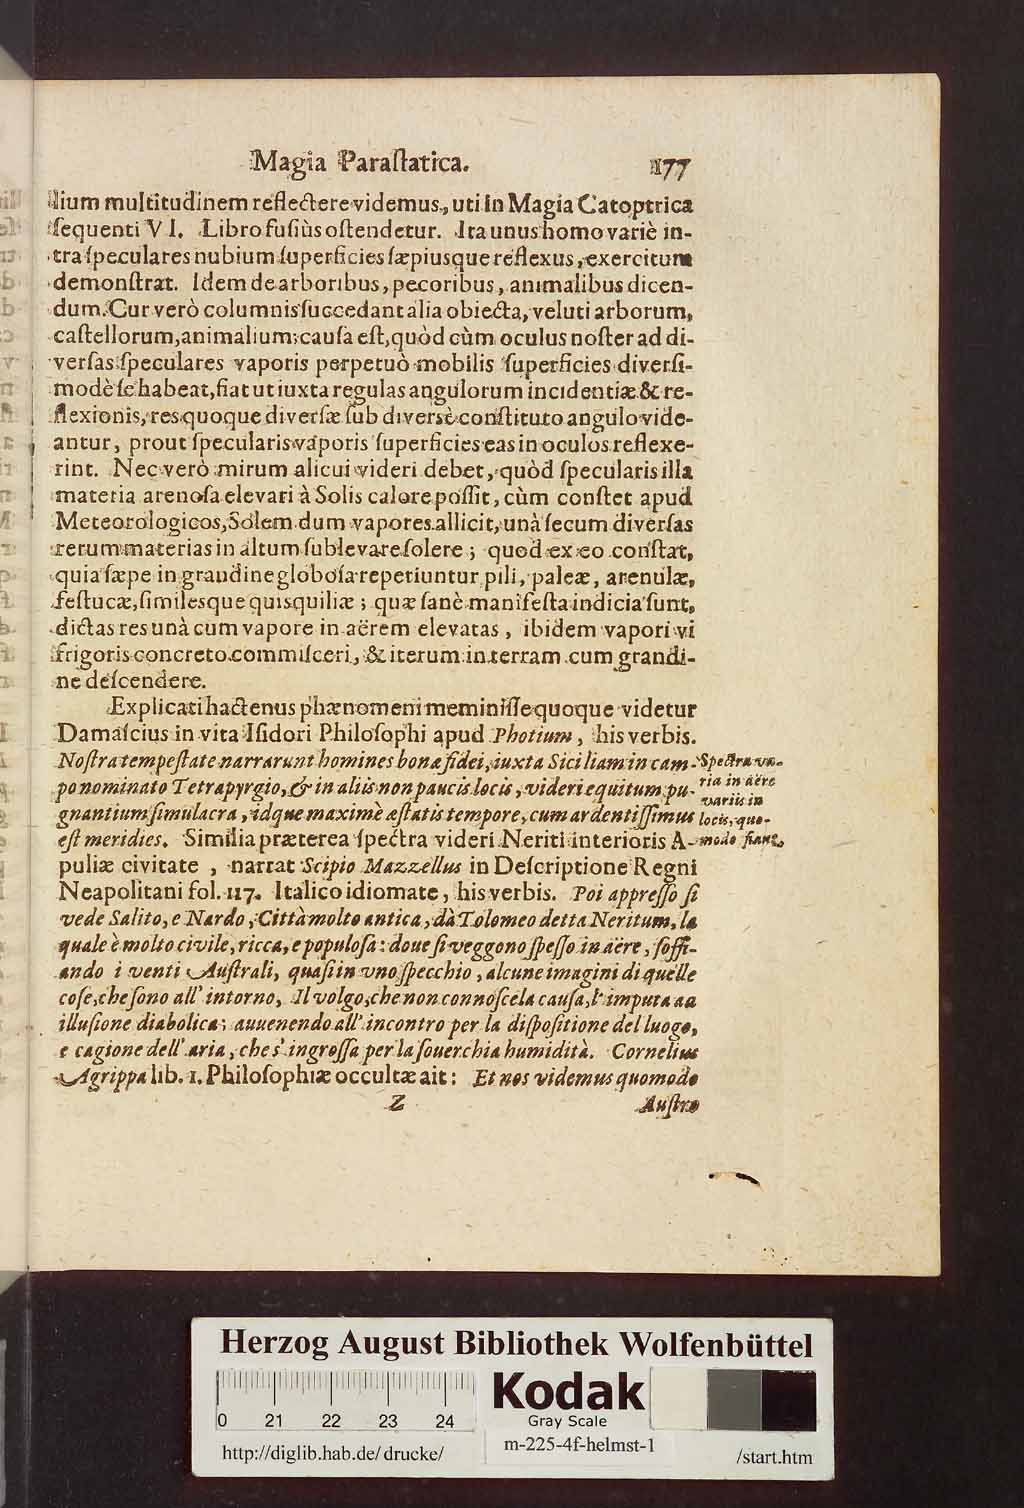 Magia Paraſtatica. 177
lium multitudinem reflectere videmus, uti in Magia Catoptrica
ſequenti VI. Libro fuſiùs oſtendetur. Ita unus homo variè in-
tra ſpeculares nubium ſuperficies ſæpiusque reflexus, exercitum
demonſtrat. Idem de arboribus, pecoribus, animalibus dicen-
dum. Cur verò columnis ſuccedant alia obiecta, veluti arborum,
caſtellorum, animalium; cauſa eſt, quòd cùm oculus noſter ad di-
verſas ſpeculares vaporis perpetuò mobilis ſuperficies diverſi-
modè ſe habeat, fiat ut iuxta regulas angulorum incidentiæ & re-
flexionis, res quoque diverſæ ſub diversè conſtituto angulo vide-
antur, prout ſpecularis vaporis ſuperficies eas in oculos reflexe-
rint. Nec verò mirum alicui videri debet, quòd ſpecularis illa
materia arenoſa elevari à Solis calore poſſit, cùm conſtet apud
Meteorologicos, Solem dum vapores allicit, unà ſecum diverſas
rerum materias in altum ſublevare ſolere; quod ex eo conſtat,
quia ſæpe in grandine globoſa reperiuntur pili, paleæ, arenulæ,
feſtucæ, ſimilesque quisquiliæ; quæ ſanè manifeſta indicia ſunt,
dictas res unà cum vapore in aërem elevatas, ibidem vapori vi
frigoris concreto commiſceri, & iterum in terram cum grandi-
ne deſcendere.
Explicati hactenus phænomeni meminiſſe quoque videtur
Damaſcius in vita Iſidori Philoſophi apud Photium, his verbis.
Noſtra tempeſtate narrarunt homines bonæ fidei, iuxta Siciliam in cam-
po nominato Tetrapyrgio, & in aliis non paucis locis, videri equitum pu-
gnantium ſimulacra, idque maximè æſtatis tempore, cum ardentiſſimus
eſt meridies. Similia præterea ſpectra videri Neriti interioris A-
puliæ civitate, narrat Scipio Mazzellus in Deſcriptione Regni
Neapolitani fol. 117. Italico idiomate, his verbis. Poi appreſſo ſi
vede Salito, e Nardo, Città molto antica, dà Tolomeo detta Neritum, la
quale è molto civile, ricca, e populoſa: doue ſi veggono ſpeſſo in aëre, ſoffi-
ando i venti Auſtrali, quaſi in vno ſpecchio, alcune imagini di quelle
coſe, che ſono all' intorno, Il volgo, che non connoſce la cauſa, l' imputa aa
illuſione diabolica; auuenendo all' incontro per la diſpoſitione del luogo,
e cagione dell' aria, che s' ingroſſa per la ſouerchia humidità. Cornelius
Agrippa lib. 1. Philoſophiæ occultæ ait: Et nos videmus quomodo
Z Auſtro
Spectra va-
ria in aëre
variis in
locis, quo-
modo fiant.
Herzog August Bibliothek Wolfenbüttel
0 21 22 23 24
Kodak
Gray Scale
http://diglib.hab.de/drucke/
m-225-4f-helmst-1
/start.htm